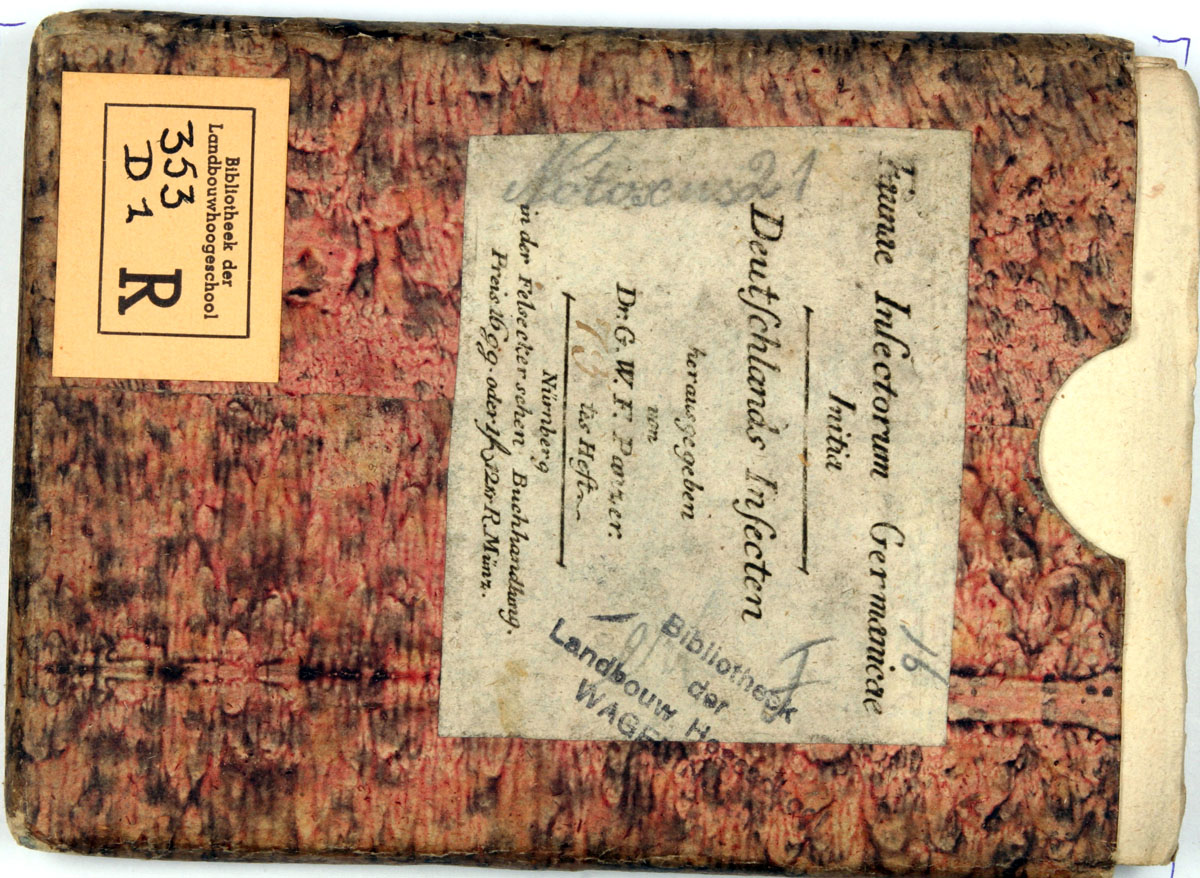 Faunae Insectorum Germanicae
Initia
Deutſchlands Inſecten
herausgegeben
von
Dr. G. W. F. Panzer.
tes Heft
Nürnberg
in der Felseckerschen Buchhandlung.
Preis 16 gg. oder 1f 12 xr R. Münz.
21
16
I
Bibliotheek
der
Landbouw Ho
WAGE
Bibliotheek der
Landbouwhoogeschool
353
D 1
R